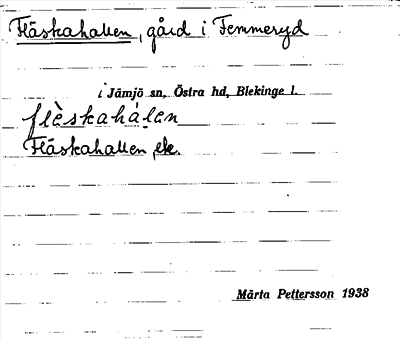 Fläskahallen, gård i Femmeryd
i Jämjö sn, Östra hd, Blekinge l.
flèskahálen
Fläskahallen, ek.
Märta Pettersson 1938